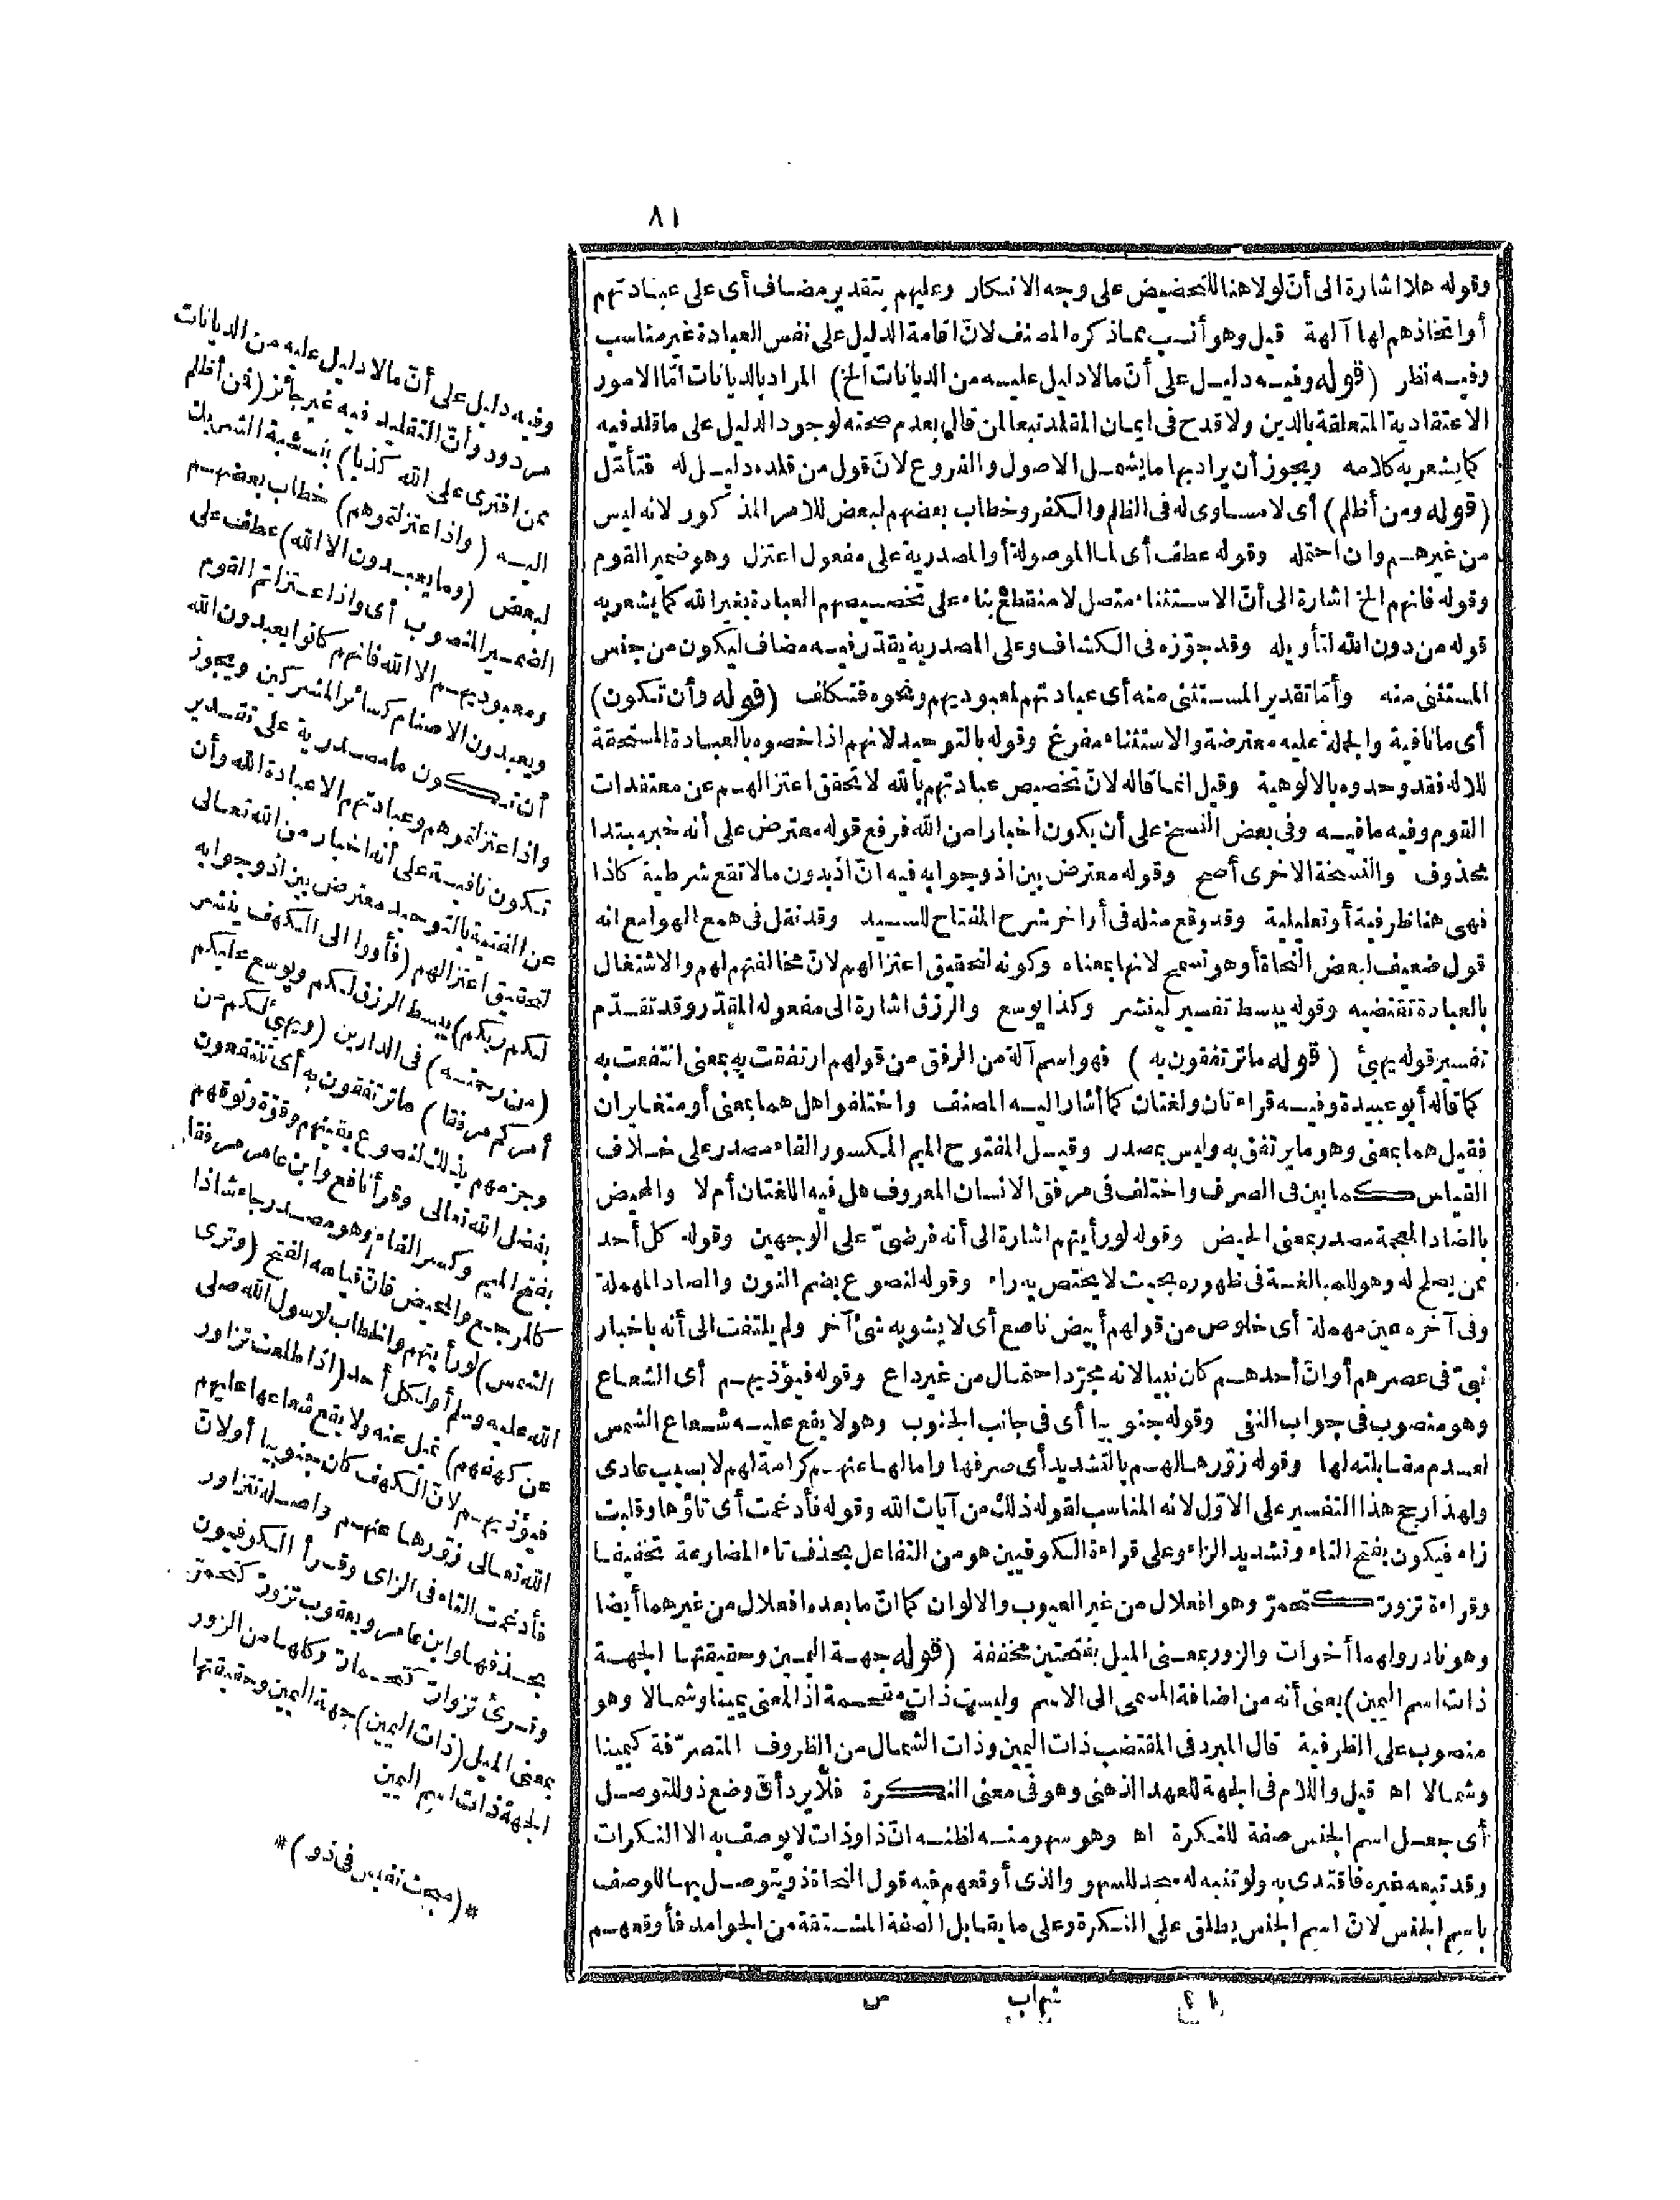 ٨١
وقوله هلا اشارة الى أنّ لولا هنا للتحضيض على وجه الانكار وعليهم بتقدير مضاف أى على عبادتهم
أو اتخاذهم لها آلهة قيل وهو أنسب مماذكره المصنف لانّ اقامة الدليل على نفس العبادة غير مناسب
وفيه نظر (قوله وفيه دليل على أنّ مالا دليل عليه من الديانات الخ) المراد بالديانات امّا الامور
الاعتقادية المتعلقة بالدين ولا قدح فى ايمان المقلد تبعا لمن قال بعدم صحته لوجود الدليل على ماقلد فيه
كما يشعر به كلامه ويجوز أن يراد بها ما يشمل الاصول والفروع لانّ قول من قلده دليل له فتأمّل
(قوله ومن أظلم) أى لا مساوى له فى الظلم والكفر وخطاب بعضهم لبعض للامر المذكور لانه ليس
من غيرهم وان احتمله وقوله عطف أى لما الموصولة أو المصدرية على مفعول اعتزل وهو ضمير القوم
وقوله فانهم الخ اشارة الى أنّ الاستثناء متصل لا منقطع بناء على تخصيصهم العبادة بغير الله كما يشعر به
قوله من دون الله لتأويله وقد جوّزه فى الكشاف وعلى المصدرية يقدّر فيه مضاف ليكون من جنس
المستثنى منه وأمّا تقدير المستثنى منه أى عبادتهم لمعبوديهم ونحوه فتكلف (قوله وأن تكون)
أى ما نافية والجملة عليه معترضة والاستثناء مفرغ وقوله بالتوحيد لانهم اذا خصوه بالعبادة المستحقة
للاله فقد وحدوه بالالوهية وقيل انما قاله لانّ تخصيص عبادتهم بالله لا تحقق اعتزالهم عن معتقدات
القوم وفيه ما فيه وفى بعض النسخ على أن يكون اخبارا من الله فرفع قوله معترض على أنه خبر مبتدا
محذوف والنسخة الاخرى أصح وقوله معترض بين اذ وجوابه فيه انّ اذ بدون ما لا تقع شرطية كاذا
فهى هنا ظرفية أو تعليلية وقد وقع مثله فى أواخر شرح المفتاح للسيد وقد نقل فى همع الهوامع انه
قول ضعيف لبعض النحاة أو هو تسمح لانها بمعناه وكونه لتحقيق اعتزالهم لانّ مخالفتهم لهم والاشتغال
بالعبادة تقتضيه وقوله يبسط تفسير لينشر وكذا يوسع والرزق اشارة الى مفعوله المقدّر وقد تقدّم
تفسير قوله يهيئ (قوله ما ترتفقون به) فهو اسم آلة من الرفق من قولهم ارتفقت به بمعنى انتفعت به
كما قاله أبو عبيدة وفيه قراءتان ولغتان كما أشار اليه المصنف واختلفوا هل هما بمعنى أو متغايران
فقيل هما بمعنى وهو ما يرتفق به وليس بمصدر وقيل المفتوح الميم المكسور الفاء مصدر على خلاف
القياس كما بين فى الصرف واختلف فى مرفق الانسان المعروف هل فيه اللغتان أم لا والمحيض
بالضاد المعجمة مصدر بمعنى الحيض وقوله لو رأيتهم اشارة الى أنه فرضىّ على الوجهين وقوله كل أحد
ممن يصلح له وهو للمبالغة فى ظهوره بحيث لا يختص به راء وقوله لنصوع بضم النون والصاد المهملة
وفى آخره عين مهملة أى خلوص من قولهم أبيض ناصع أى لا يشوبه شئ آخر ولم يلتفت الى أنه باخبار
نبىّ فى عصرهم أو انّ أحدهم كان نبيا لانه مجرّد احتمال من غير داع وقوله فيؤذيهم أى الشعاع
وهو منصوب فى جواب النفى وقوله جنوبيا أى فى جانب الجنوب وهو لا يقع عليه شعاع الشمس
لعدم مقابلته لها وقوله زوّرها لهم بالتشديد أى صرفها وامالها عنهم كرامة لهم لا بسبب عادى
ولهذا رجح هذا التفسير على الاوّل لانه المناسب لقوله ذلك من آيات الله وقوله فأدغمت أى تاؤها وقلبت
زاء فيكون بفتح التاء وتشديد الزاء وعلى قراءة الكوفيين هو من التفاعل بحذف تاء المضارعة تخفيفا
وقراءة تزورّ كتحمرّ وهو افعلال من غير العيوب والالوان كما انّ ما بعده افعلال من غيرهما أيضا
وهو نادر ولهما أخوات والزور بمعنى الميل بفتحتين مخففة (قوله جهة اليمين وحقيقتها الجهة
ذات اسم اليمين) يعنى أنه من اضافة المسمى الى الاسم وليست ذات مقحمة اذ المعنى يمينا وشمالا وهو
منصوب على الظرفية قال المبرد فى المقتضب ذات اليمين وذات الشمال من الظروف المتصرّفة كيمينا
وشمالا اه قيل واللام فى الجهة للعهد الذهنى وهو فى معنى النكرة فلا يرد أنّ وضع ذو للتوصل
أى جعل اسم الجنس صفة للنكرة اه وهو سهو منه لظنه انّ ذا وذات لا يوصف به الا النكرات
وقد تبعه غيره فاقتدى به ولو تنبه له سجد للسهو والذى أوقعهم فيه قول النحاة ذو يتوصل بها للوصف
باسم الجنس لانّ اسم الجنس يطلق على النكرة وعلى ما يقابل الصفة المشتقة من الجوامد فأوقعهم
١١
شهاب
س
وفيه دليل على أنّ مالا دليل عليه من الديانات
مردود وأنّ التقليد فيه غير جائز (فمن أظلم
ممن افترى على الله كذبا) بنسبة الشريك
اليه (واذ اعتزلتموهم) خطاب بعضهم
لبعض (وما يعبدون الا الله) عطف على
الضمير المنصوب أى واذ اعتزلتم القوم
ومعبوديهم الا الله فانهم كانوا يعبدون الله
ويعبدون الاصنام كسائر المشركين ويجوز
أن تكون ما مصدرية على تقدير
واذ اعتزلتموهم وعبادتهم الا عبادة الله وأن
تكون نافية على أنه اخبار من الله تعالى
عن الفتية بالتوحيد معترض بين اذ وجوابه
لتحقيق اعتزالهم (فأووا الى الكهف ينشر
لكم ربكم) يبسط الرزق لكم ويوسع عليكم
(من رحمته) فى الدارين (ويهيئ لكم من
أمركم مرفقا) ما ترتفقون به أى تنتفعون
وجزمهم بذلك لنصوع يقينهم وقوّة وثوقهم
بفضل الله تعالى وقرأ نافع وابن عامر مرفقا
بفتح الميم وكسر الفاء وهو مصدر جاء شاذا
كالمرجع والمحيض فانّ قياسه الفتح (وترى
الشمس) لو رأيتهم والخطاب لرسول الله صلى
الله عليه وسلم أو لكل أحد (اذا طلعت تزاور
عن كهفهم) تميل عنه ولا يقع شعاعها عليهم
فيؤذيهم لانّ الكهف كان جنوبيا أو لانّ
الله تعالى زوّرها عنهم وأصله تتزاور
فأدغمت التاء فى الزاى وقرأ الكوفيون
بحذفها وابن عامر ويعقوب تزورّ كتحمرّ
وقرئ تزوارّ كتحمارّ وكلها من الزور
بمعنى الميل (ذات اليمين) جهة اليمين وحقيقتها
الجهة ذات اسم اليمين
*(مبحث نفيس فى ذو)*